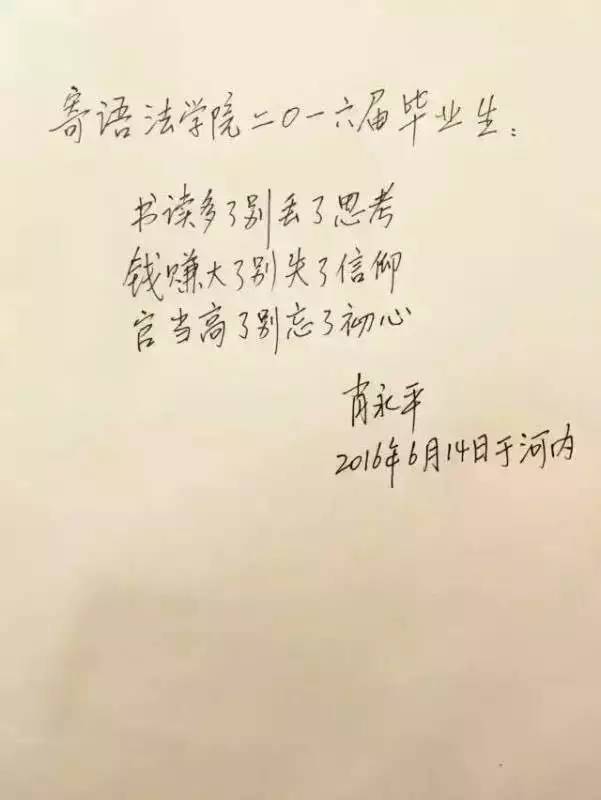 寄语法学院二〇一六届毕业生：
书读多了别丢了思考
钱赚大了别失了信仰
官当高了别忘了初心
肖永平
2016年6月14日于河内